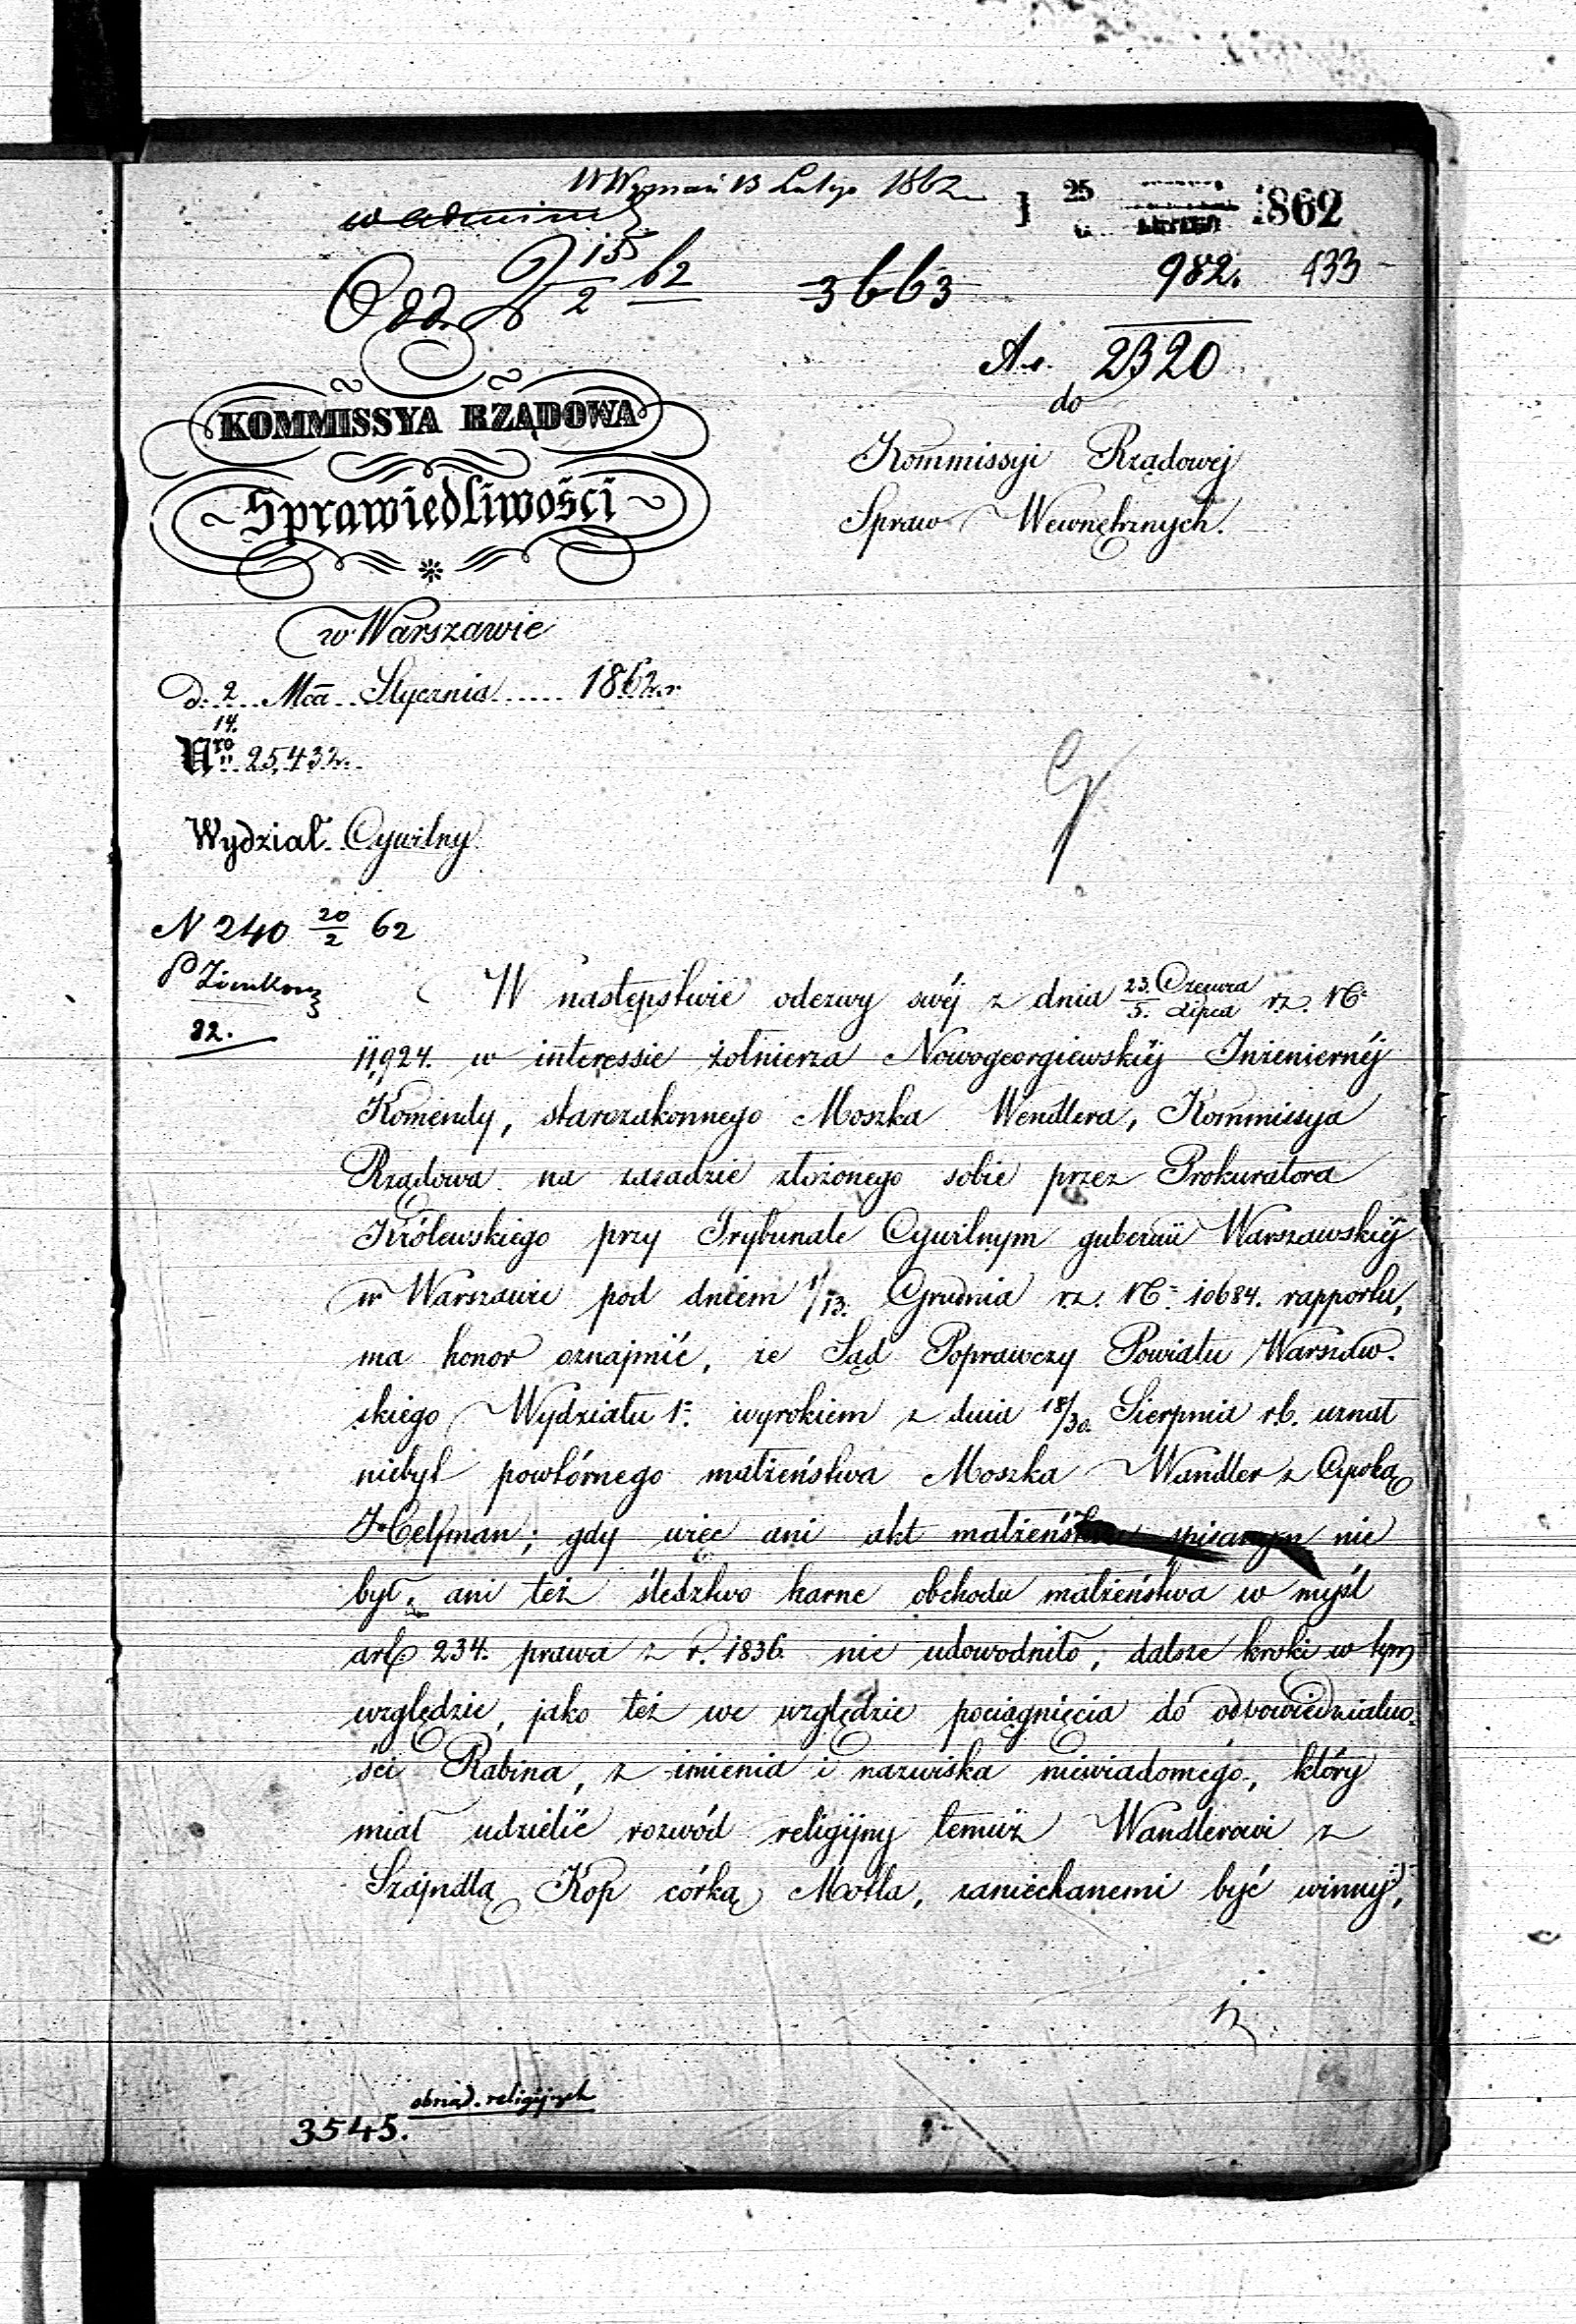 W Wyznań 13 Lutego 1862
25 1862
982. 433
Odd. 15/2 62 3663
Ad. 2320
do
KOMMISSYA RZĄDOWA
Kommissyi Rządowej
Sprawiedliwości
Spraw Wewnętrznych.
w Warszawie
d. 2/14. Mca Stycznia 1862 r.
Nro 25,432.
Wydział Cywilny
N 240 20/2 62
W następstwie odezwy swéj z dnia 23. Czerwca/5. Lipca r.z. No
82.
11,924. w interessie żołnierza Nowogeorgiewskiéj Inżeniernéj
Komendy, starozakonnego Moszka Wendlera, Kommissya
Rządowa na zasadzie złożonego sobie przez Prokuratora
Królewskiego przy Trybunale Cywilnym gubernii Warszawskiéj
w Warszawie pod dniem 1/13. Grudnia r.z. No 10684. rapportu,
ma honor oznajmić, że Sąd Poprawczy Powiatu Warszaw-
skiego Wydziału 1o. wyrokiem z dnia 18/30. Sierpnia r.b. uznał
niebyt powtórnego małżeństwa Moszka Wandler z Cypką
Helfman; gdy więc ani akt małżeństwa spisanym nie
był, ani też śledztwo karne obchodu małżeństwa w myśl
art 234. prawa z r. 1836. nie udowodniło, dalsze kroki w tym
względzie, jako też we względzie pociągnięcia do odpowiedzialno-
ści Rabina, z imienia i nazwiska niewiadomego, który
miał udzielić rozwód religijny temuż Wandlerowi z
Szajndlą Kop córką Motla, zaniechanemi być winny,
obrząd. religijnych
3545.